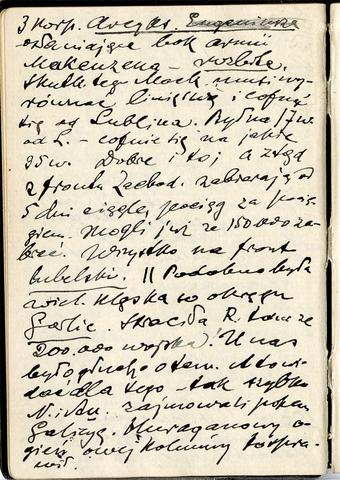 3 korp. arcyks. Eugeniusza
osłaniające bok armii
Makenzena – rozbite.
Skutkiem tego Mack. musi wy-
równać linię i cofnąć
się od Lublina. Był na 17 w
od L. – cofnie się na jakie
35 w. Dobre i to, a stąd
z frontu Zachod. zabierają od
5 dni ciągle, pociąg za pocią-
giem. Mogli już ze 150.000 za-
brać. Wszystko na front
lubelski. || Podobno była
wielk. klęska w okręgu
Gorlic. Straciła R. tam ze
200.000 wojska! U nas
było głucho o tem. A to wi-
dać dla tego – tak szybko
N. i Au. zajmowali potem
Galicyę. Huraganowy o-
gień, owej kolumny